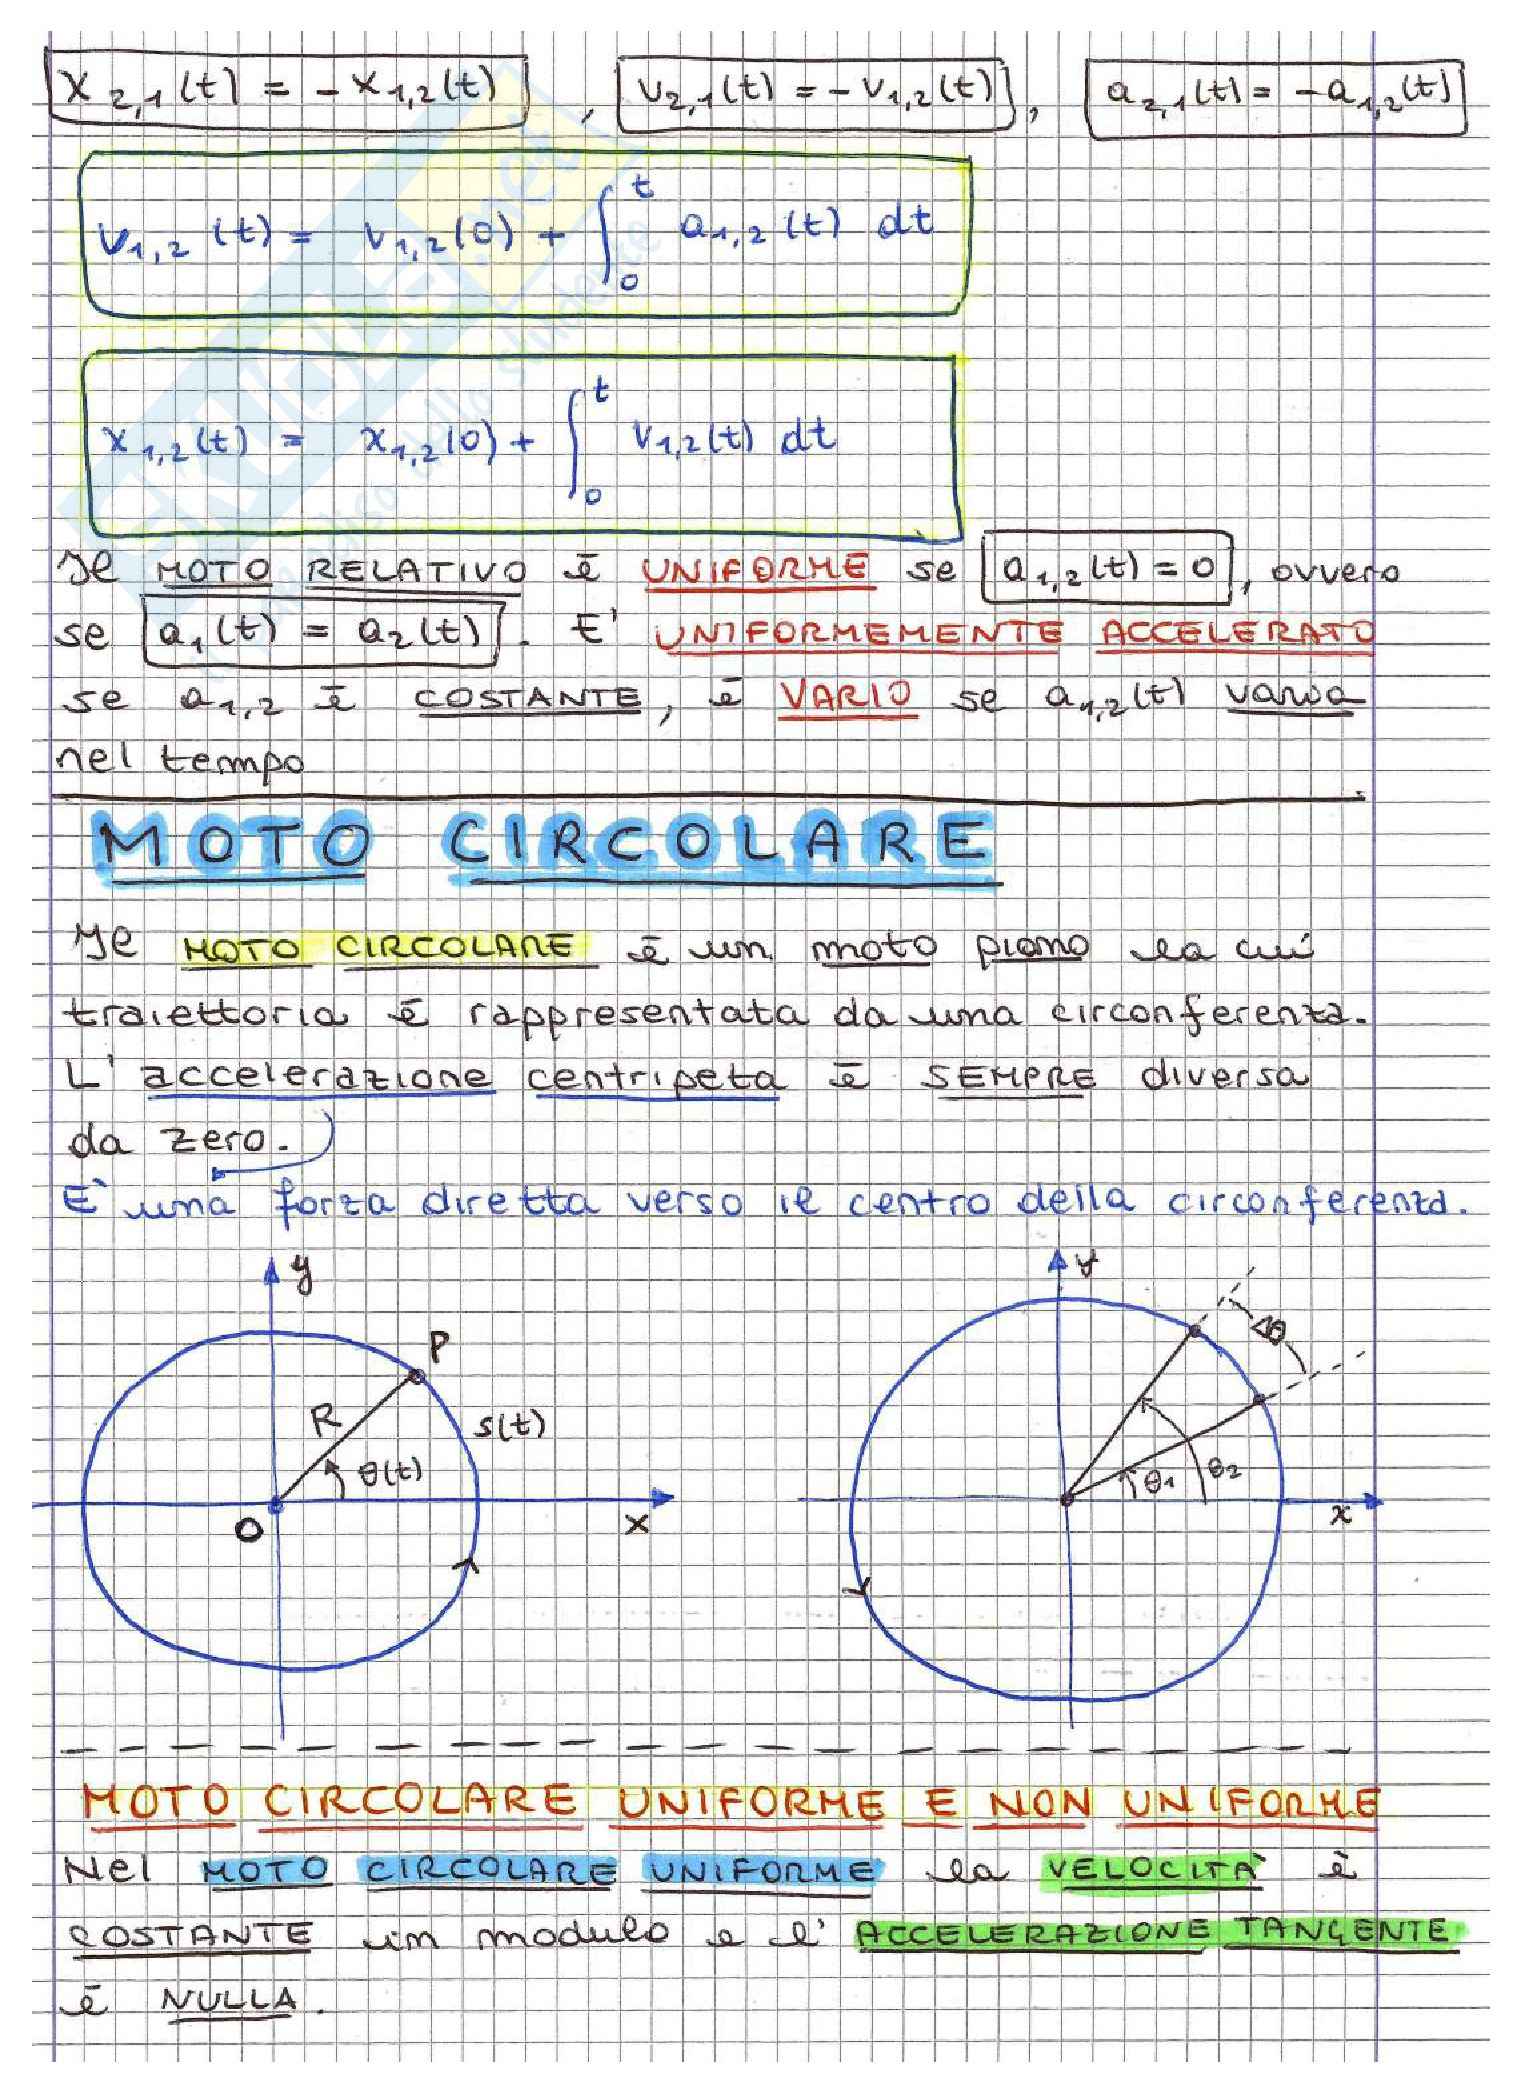 x₂,₁(t) = -x₁,₂(t) , v₂,₁(t) = -v₁,₂(t) , a₂,₁(t) = -a₁,₂(t)
v₁,₂(t) = v₁,₂(0) + ∫₀ᵗ a₁,₂(t) dt
x₁,₂(t) = x₁,₂(0) + ∫₀ᵗ v₁,₂(t) dt
Il MOTO RELATIVO è UNIFORME se a₁,₂(t) = 0, ovvero
se a₁(t) = a₂(t). E' UNIFORMEMENTE ACCELERATO
se a₁,₂ è COSTANTE, è VARIO se a₁,₂(t) varia
nel tempo
MOTO CIRCOLARE
Il MOTO CIRCOLARE è un moto piano la cui
traiettoria è rappresentata da una circonferenza.
L'accelerazione centripeta è SEMPRE diversa
da zero.
E' una forza diretta verso il centro della circonferenza.
y
P
R
s(t)
θ(t)
O
x
y
Δθ
θ₁
θ₂
x
MOTO CIRCOLARE UNIFORME E NON UNIFORME
Nel MOTO CIRCOLARE UNIFORME la VELOCITÀ è
COSTANTE in modulo e l'ACCELERAZIONE TANGENTE
è NULLA.